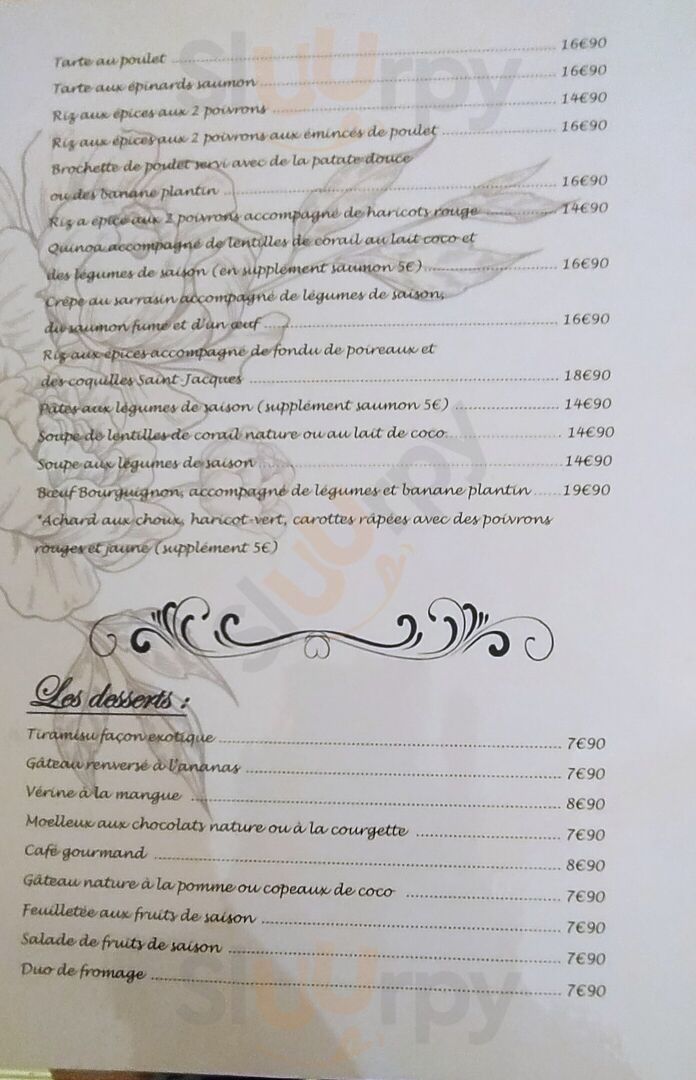 Tarte au poulet ........ 16€90
Tarte aux épinards saumon ........ 16€90
Riz aux épices aux 2 poivrons ........ 14€90
Riz aux épices aux 2 poivrons aux émincés de poulet ........ 16€90
Brochette de poulet servi avec de la patate douce
ou des banane plantin ........ 16€90
Riz a épice aux 2 poivrons accompagné de haricots rouge ........ 14€90
Quinoa accompagné de lentilles de corail au lait coco et
des légumes de saison (en supplément saumon 5€) ........ 16€90
Crêpe au sarrasin accompagné de légumes de saison,
du saumon fumé et d'un œuf ........ 16€90
Riz aux épices accompagné de fondu de poireaux et
des coquilles Saint-Jacques ........ 18€90
Pâtes aux légumes de saison (supplément saumon 5€) ........ 14€90
Soupe de lentilles de corail nature ou au lait de coco ........ 14€90
Soupe aux légumes de saison ........ 14€90
Bœuf Bourguignon, accompagné de légumes et banane plantin ...... 19€90
*Achard aux choux, haricot-vert, carottes râpées avec des poivrons
rouges et jaune (supplément 5€)
Les desserts :
Tiramisu façon exotique ........ 7€90
Gâteau renversé à l'ananas ........ 7€90
Vérine à la mangue ........ 8€90
Moelleux aux chocolats nature ou à la courgette ........ 7€90
Café gourmand ........ 8€90
Gâteau nature à la pomme ou copeaux de coco ........ 7€90
Feuilletée aux fruits de saison ........ 7€90
Salade de fruits de saison ........ 7€90
Duo de fromage ........ 7€90
sluurpy
sluurpy
sluurpy